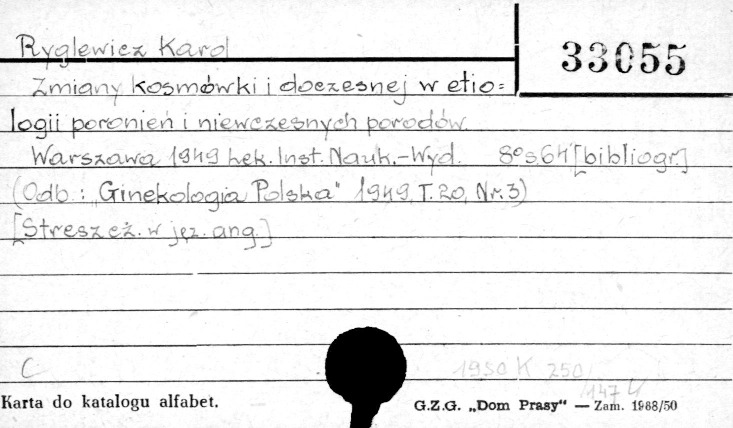 Ryglewicz Karol
33055
Zmiany kosmówki i doczesnej w etio=
logii poronień i niewczesnych porodów.
Warszawa 1949 Lek. Inst. Nauk.-Wyd. 8°s.64 [bibliogr.]
(Odb.: „Ginekologia Polska" 1949, T.20, Nr.3)
[Streszcz. w jęz. ang.]
C 1950 K 250
/147
Karta do katalogu alfabet. G.Z.G. „Dom Prasy" — Zam. 1988/50